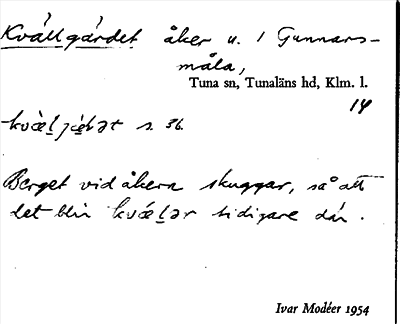 Kvällgärdet åker u. 1 Gunnars-
måla,
Tuna sn, Tunaläns hd, Klm. l.
14
s. 36.
Berget vid åkern skuggar, så att
det blir kvæ̀l̠ər tidigare där.
Ivar Modéer 1954